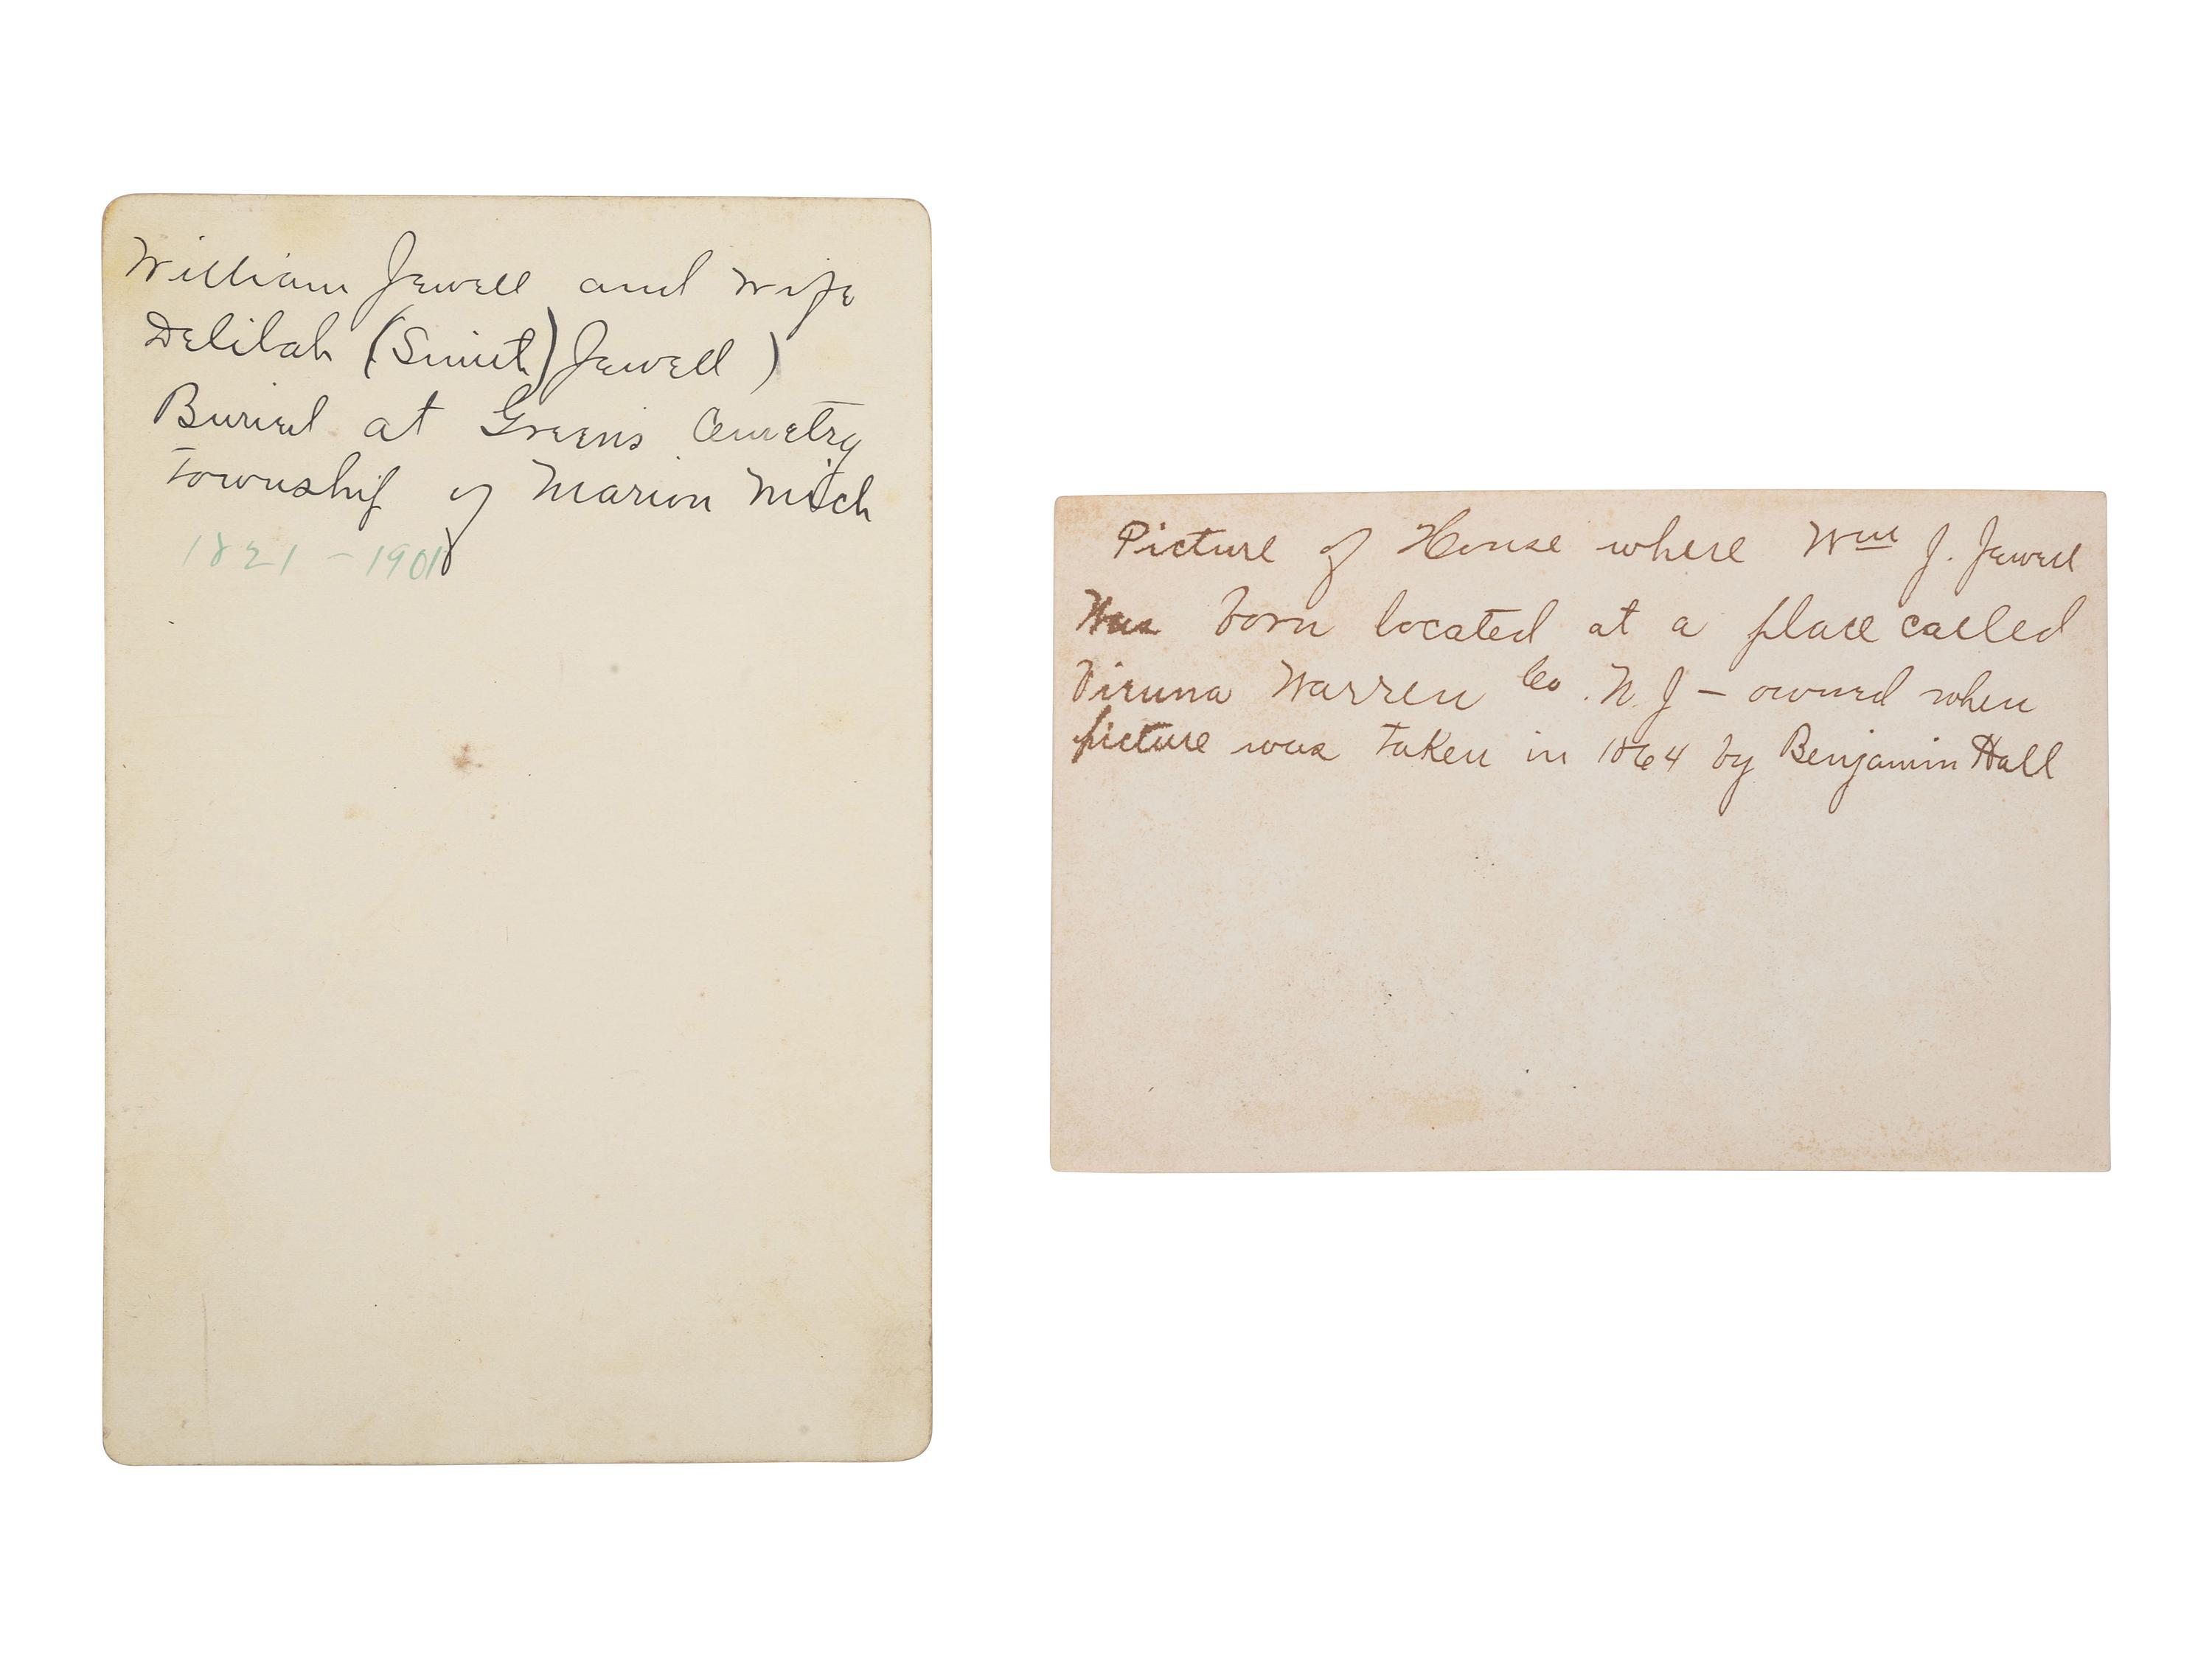 William Jewell and wife
Delilah (Smith) Jewell)
Buried at Greens Cemetry
Township of Marion Mich
1821 - 1901
Picture of House where Wm J. Jewell
Was born located at a place called
Vienna Warren Co. N. J - owned when
picture was taken in 1864 by Benjamin Hall